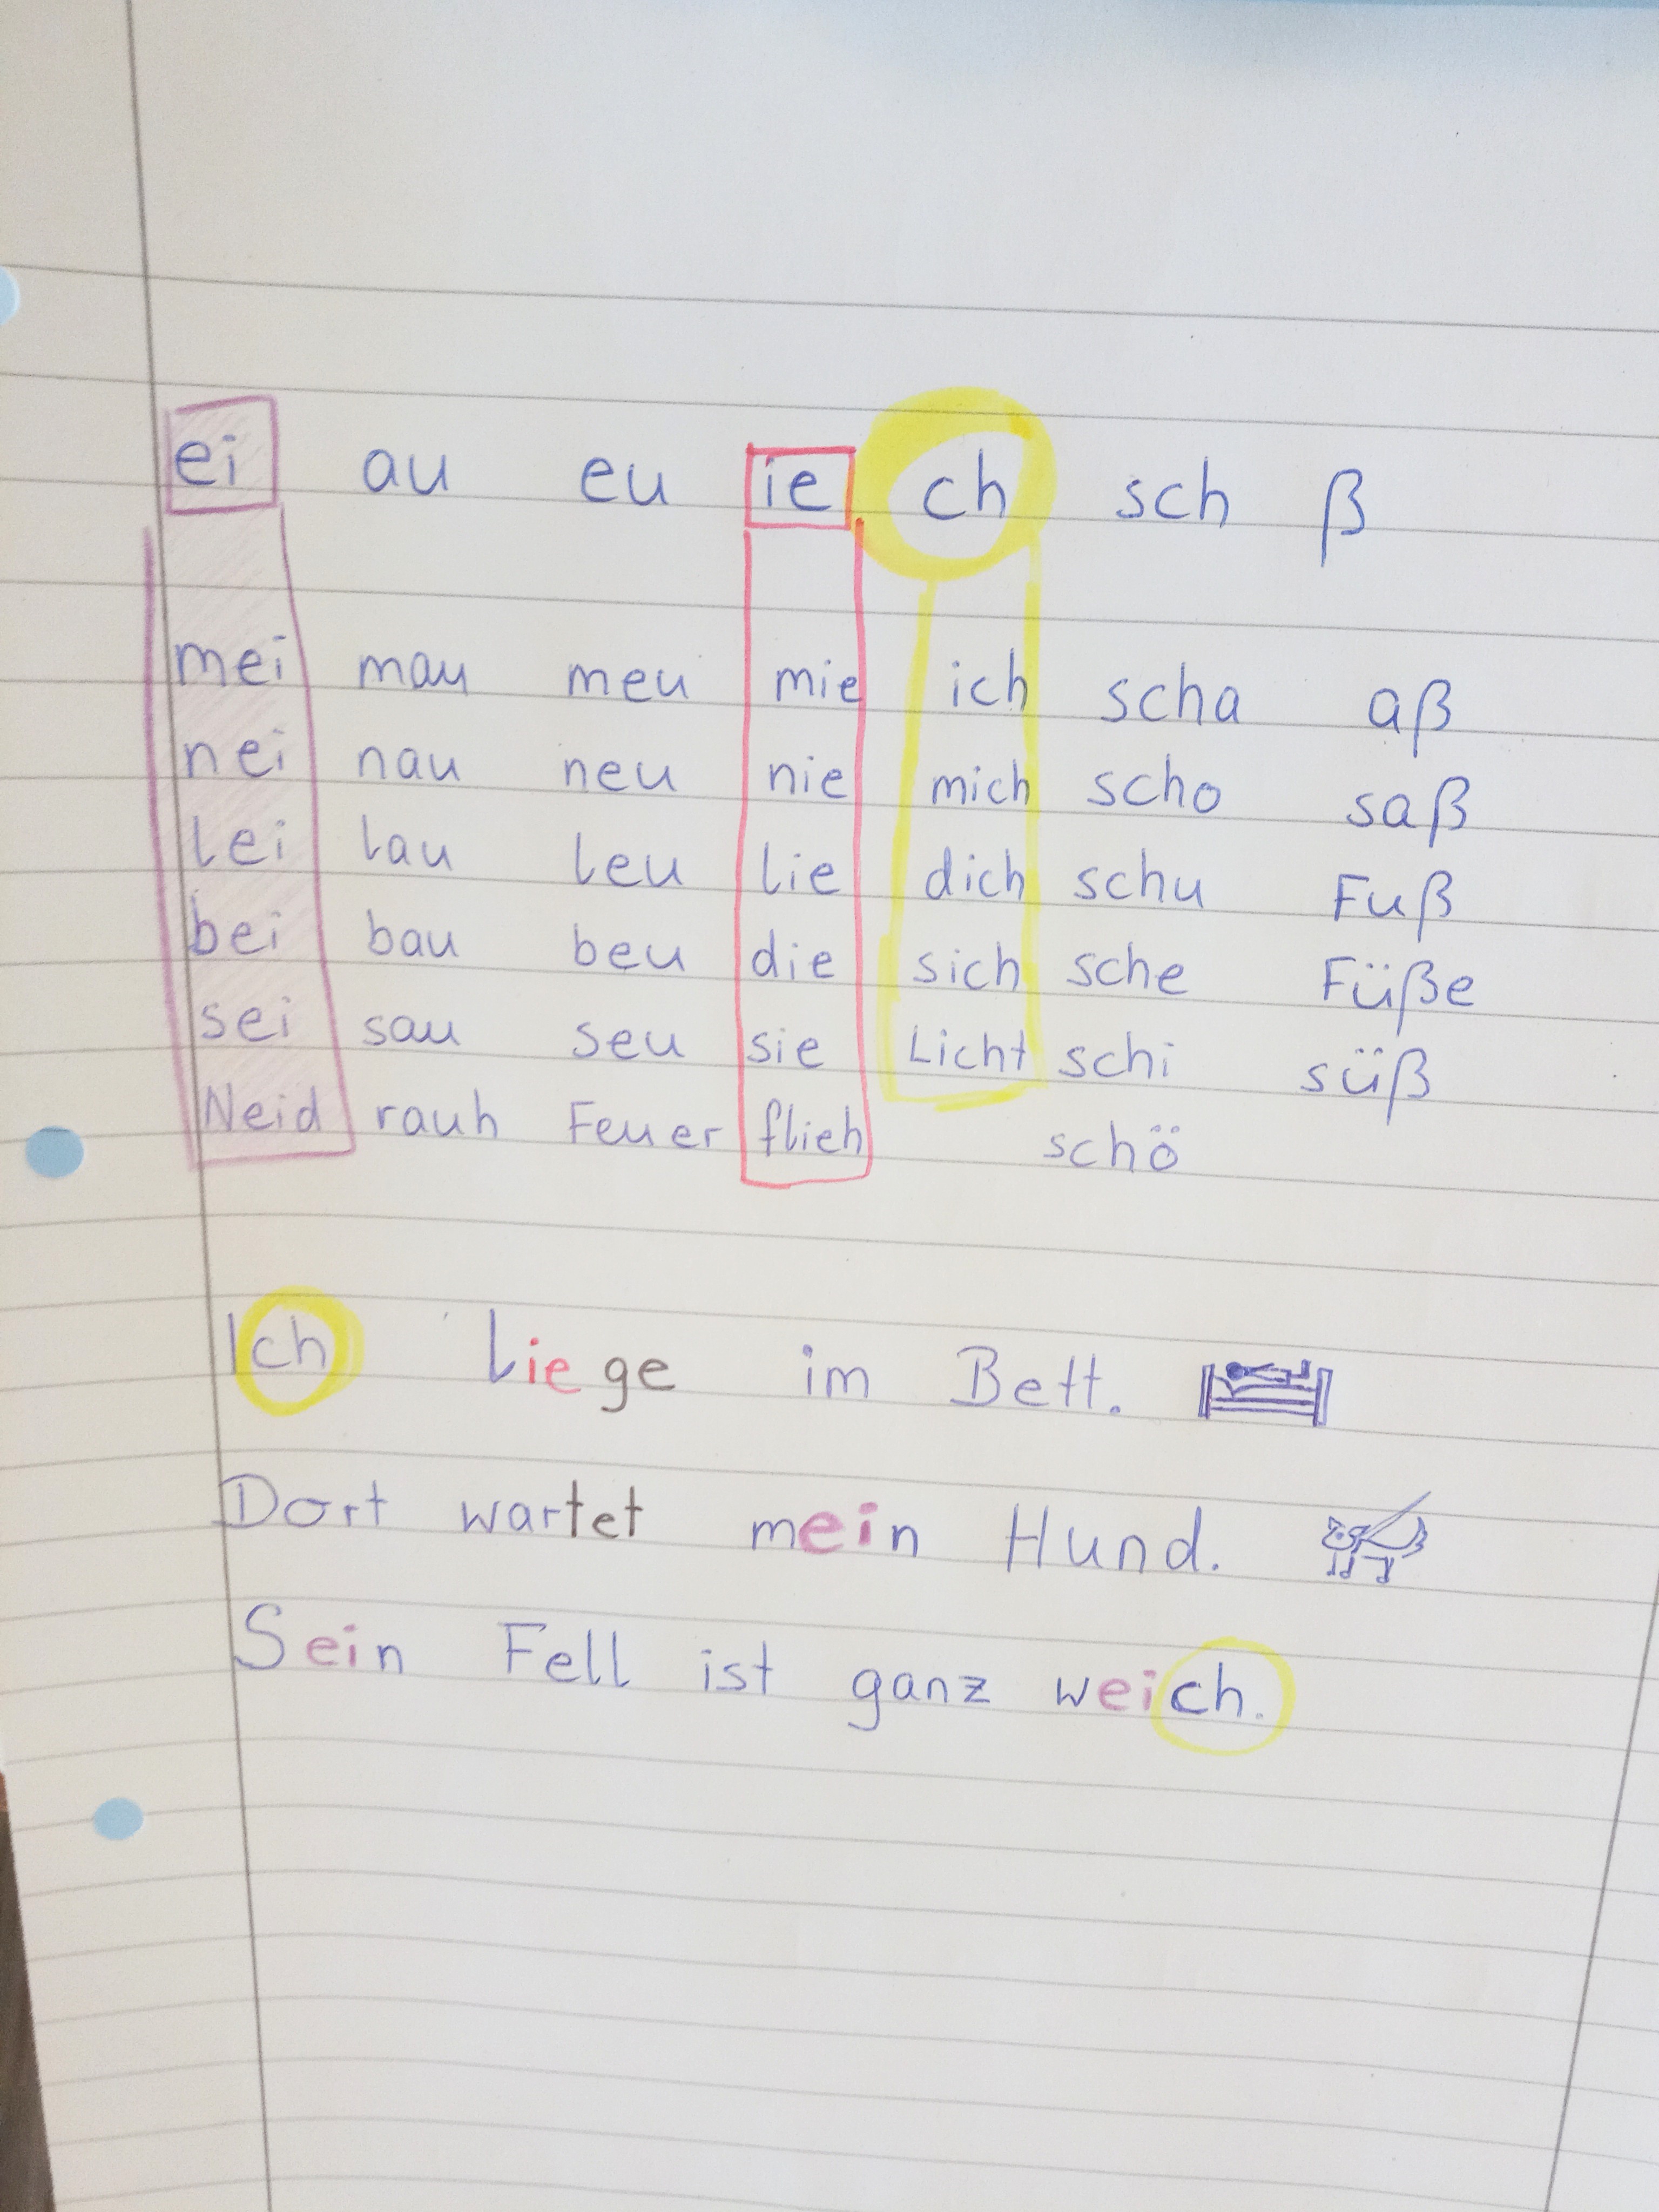 ei au eu ie ch sch ß
mei mau meu mie ich scha aß
nei nau neu nie mich scho saß
lei lau leu lie dich schu Fuß
bei bau beu die sich sche Füße
sei sau seu sie Licht schi süß
Neid rauh Feuer flieh schö
Ich liege im Bett.
Dort wartet mein Hund.
Sein Fell ist ganz weich.